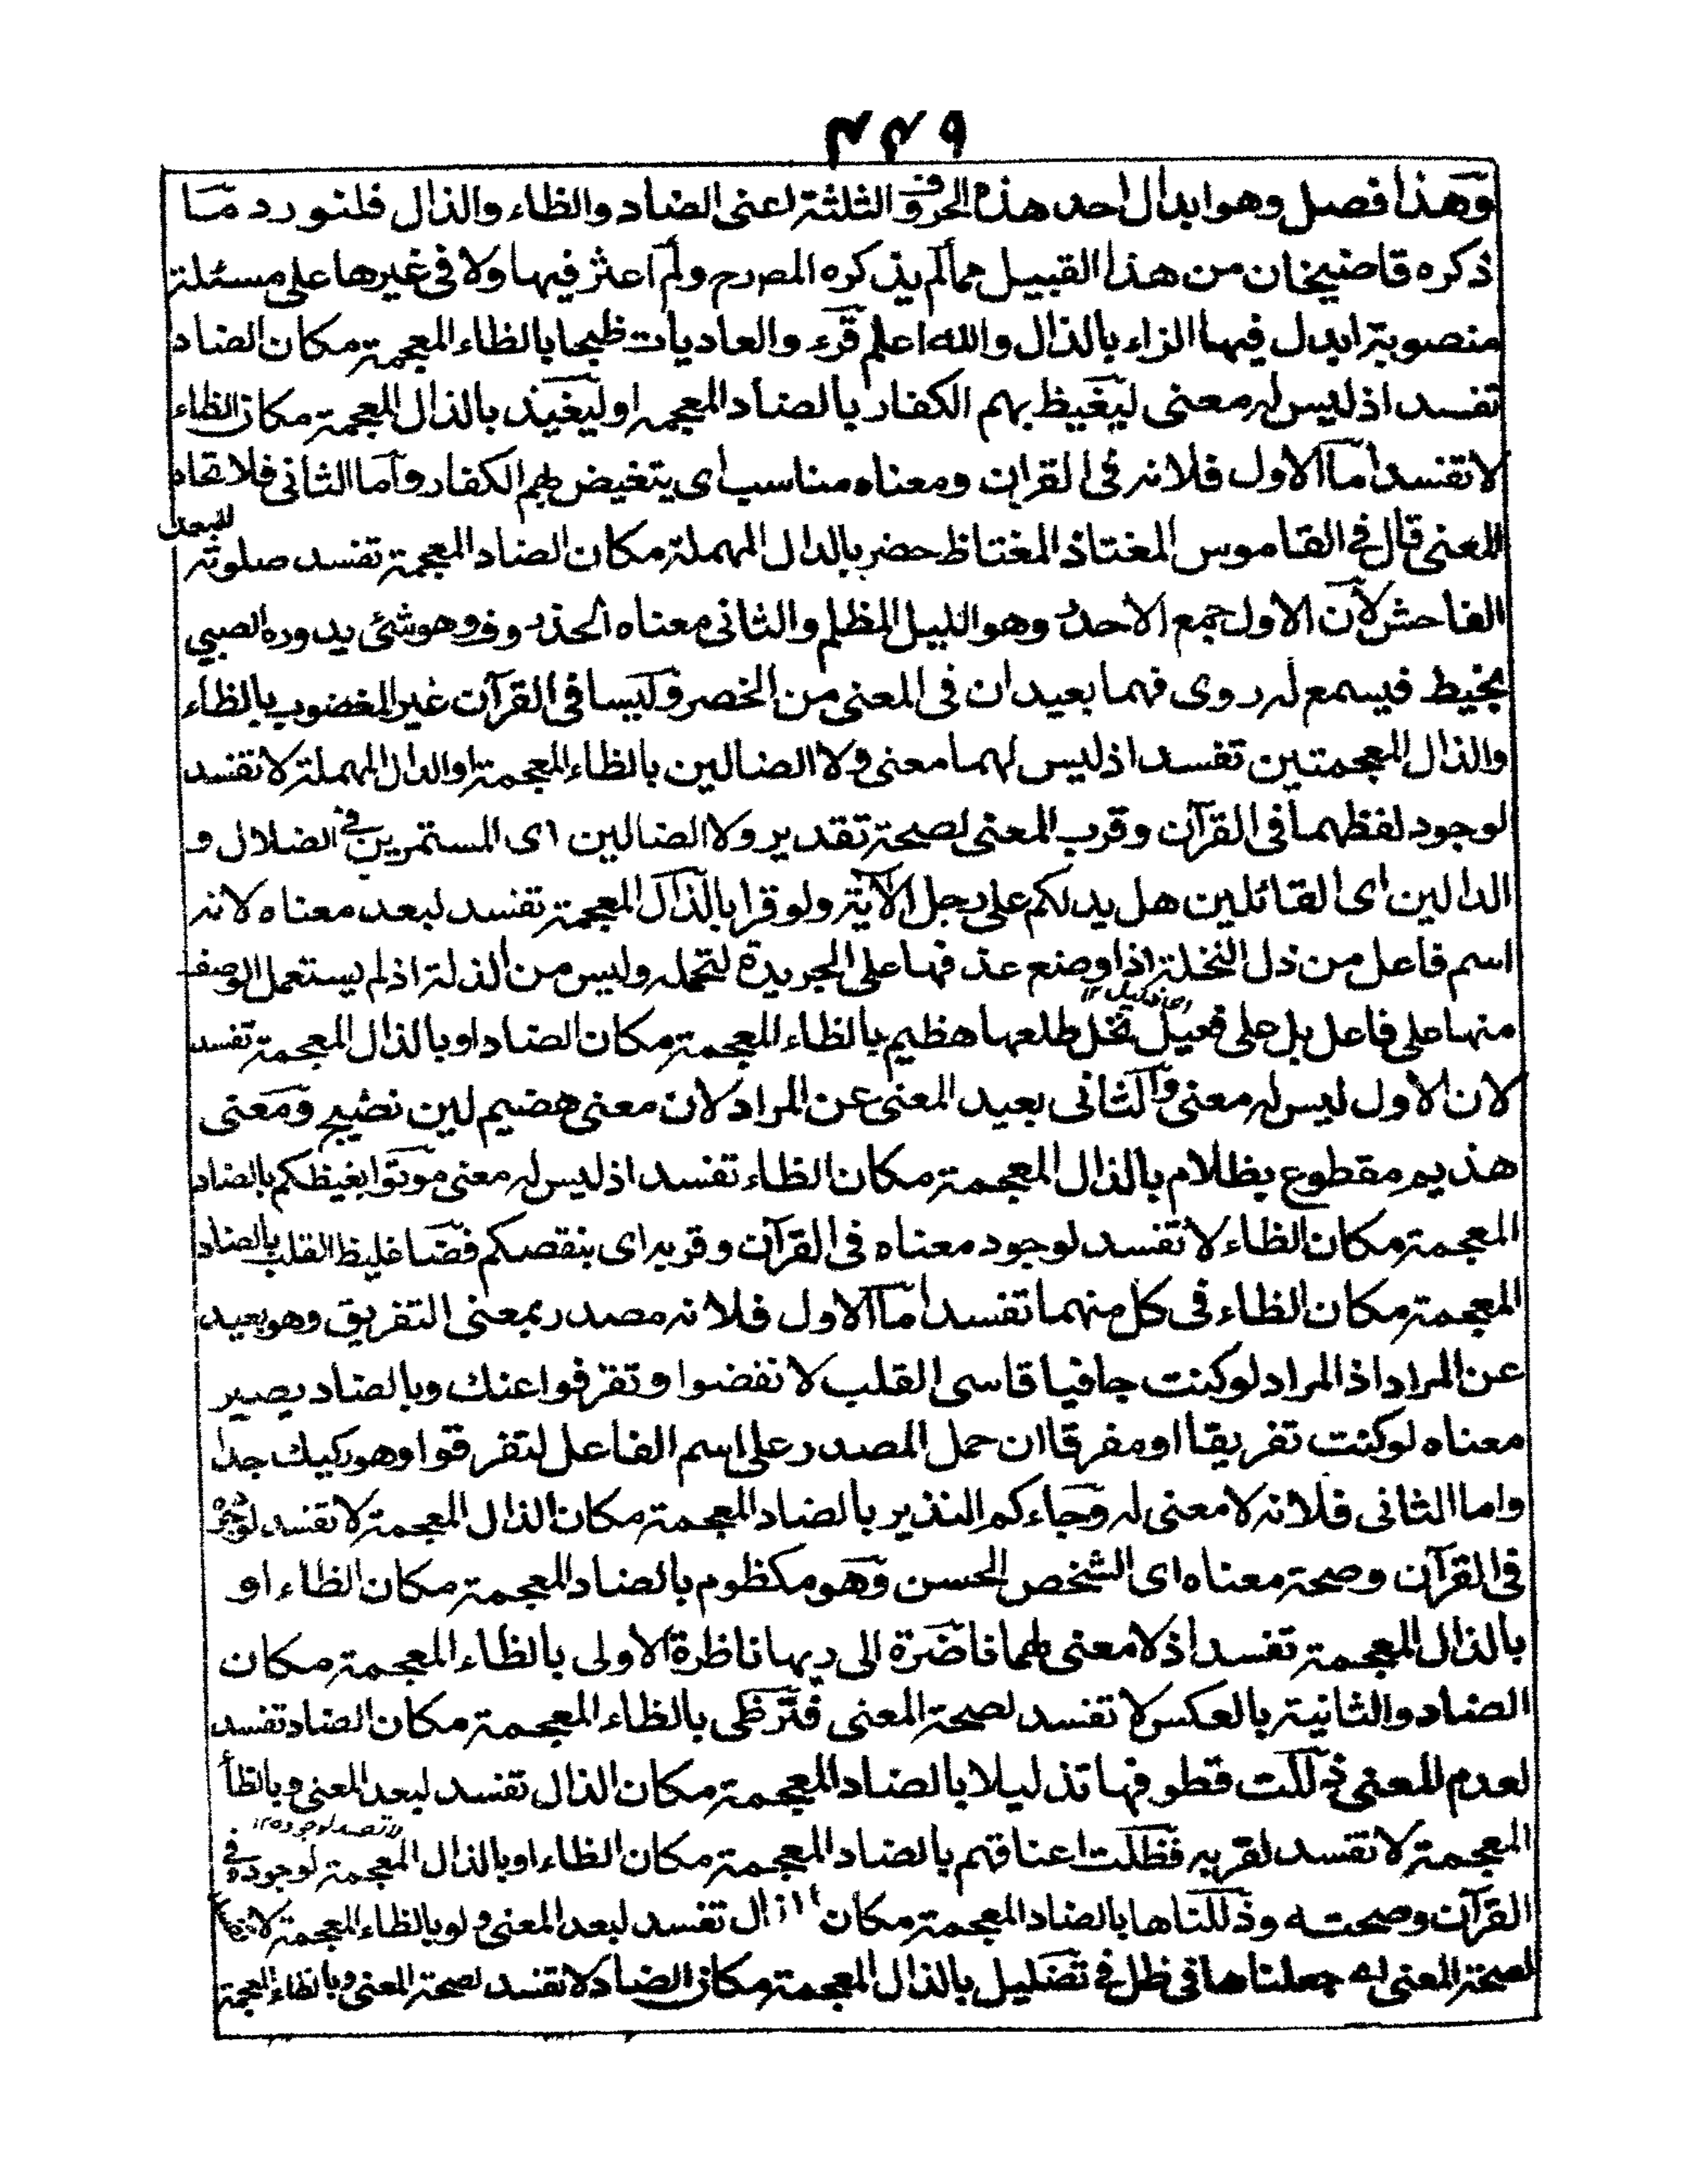 ٤٤٩
وهذا فصل وهو ابدال احد هذه الحروف الثلثة اعنى الضاد والظاء والذال فلنورد ما
ذكره قاضيخان من هذا القبيل مما لم يذكره المص رح ولم اعثر فيها ولا فى غيرها على مسئلة
منصوبة ابدل فيها الزاء بالذال والله اعلم قرء والعاديات ظبحا بالظاء المعجمة مكان الضاد
تفسد اذ ليس له معنى ليغيظ بهم الكفار بالضاد المعجمه او ليغيذ بالذال المعجمة مكان الظاء
لا تفسد اما الاول فلانه فى القران ومعناه مناسب اى يتغيض بهم الكفار واما الثانى فلاتحاد
المعنى قال فى القاموس المغتاذ المغتاظ خضر بالدال المهملة مكان الضاد المعجمة تفسد صلوته للبعد
الفاحش لان الاول جمع الاخدر وهو الليل المظلم والثانى معناه الخذروف وهو شئ يدوره الصبي
بخيط فيسمع له روى فهما بعيدان فى المعنى من الخضر وليسا فى القرآن غير المغضوب بالظاء
والذال المعجمتين تفسد اذ ليس لهما معنى ولا الضالين بالظاء المعجمة او الدال المهملة لا تفسد
لوجود لفظهما فى القرآن وقرب المعنى لصحة تقدير ولا الضالين اى المستمرين فى الضلال و
الدالين اى القائلين هل يدلكم على رجل الآية ولو قرا بالذال المعجمة تفسد لبعد معناه لانه
اسم فاعل من ذل النخلة اذا وضع عذفها على الجريدة لتحمله وليس من الذلة اذ لم يستعمل الوصف
منها على فاعل بل على فعيل نخل طلعها هظيم بالظاء المعجمة مكان الضاد او بالذال المعجمة تفسد
لان الاول ليس له معنى والثانى بعيد المعنى عن المراد لان معنى هضيم لين نضيج ومعنى
هذيم مقطوع بظلام بالذال المعجمة مكان الظاء تفسد اذ ليس له معنى موتوا بغيظكم بالضاد
المعجمة مكان الظاء لا تفسد لوجود معناه فى القرآن وقربه اى بنقصكم فضا غليظ القلب بالضاد
المعجمة مكان الظاء فى كل منهما تفسد اما الاول فلانه مصدر بمعنى التفريق وهو بعيد
عن المراد اذ المراد لو كنت جافيا قاسى القلب لانفضوا وتفرقوا عنك وبالضاد يصير
معناه لو كنت تفريقا او مفرقا ان حمل المصدر على اسم الفاعل لتفرقوا وهو ركيك جدا
واما الثانى فلانه لا معنى له وجاءكم النذير بالضاد المعجمة مكان الذال المعجمة لا تفسد لوجوده
فى القرآن وصحة معناه اى الشخص الحسن وهو مكظوم بالضاد المعجمة مكان الظاء او
بالذال المعجمة تفسد اذ لا معنى لهما ناضرة الى ربها ناظرة الاولى بالظاء المعجمة مكان
الضاد والثانية بالعكس لا تفسد لصحة المعنى فترظى بالظاء المعجمة مكان الضاد تفسد
لعدم المعنى ذللت قطوفها تذليلا بالضاد المعجمة مكان الذال تفسد لبعد المعنى وبالظاء
المعجمة لا تفسد لقربه فظلت اعناقهم بالضاد المعجمة مكان الظاء او بالذال المعجمة لا تفسد لوجوده ١٢ لوجوده فى
القرآن وصحته وذللناها بالضاد المعجمة مكان الذال تفسد لبعد المعنى ولو بالظاء المعجمة لا
لصحة المعنى اى جعلناها فى ظل فى تضليل بالذال المعجمة مكان الضاد لا تفسد لصحة المعنى وبالظاء المعجمة